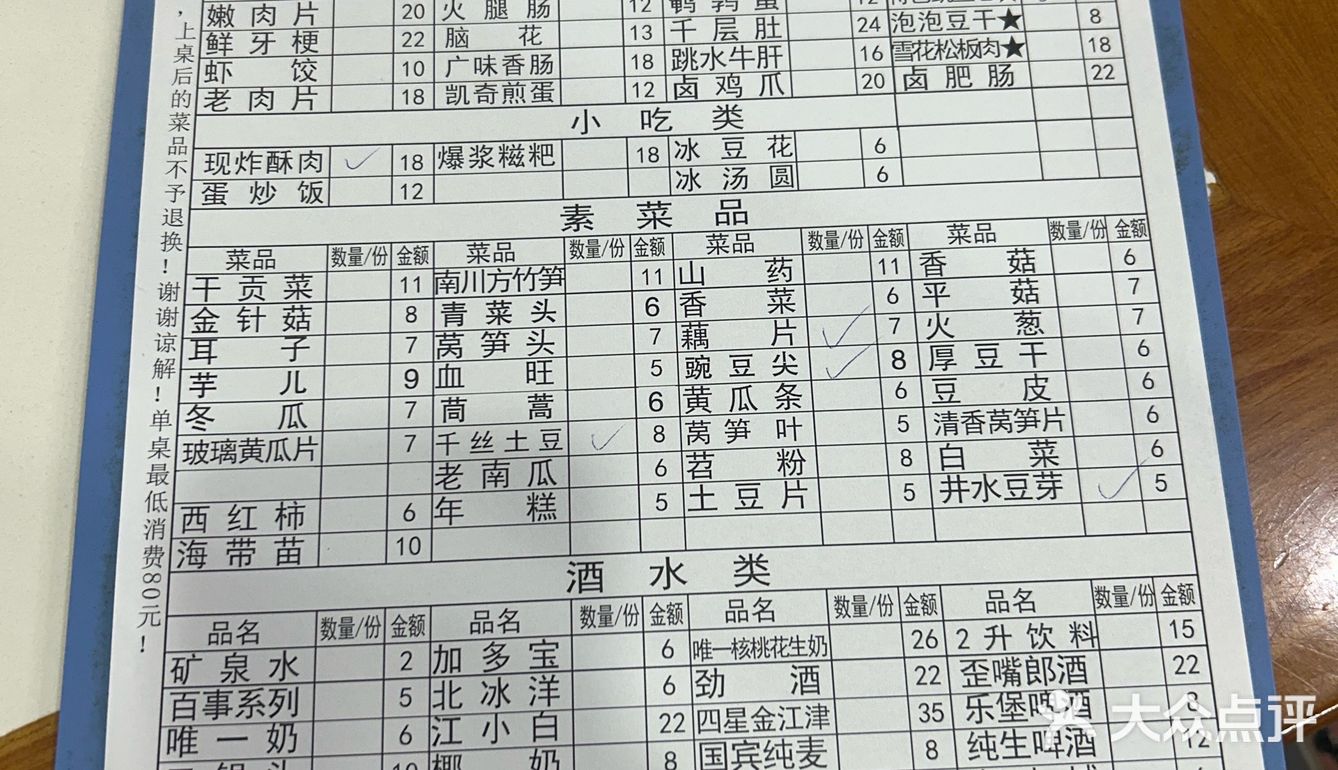 ，上桌后的菜品不予退换！谢谢谅解！单桌最低消费80元！
嫩肉片 20 火腿肠 12
鲜牙梗 22 脑花 13 千层肚 24 泡泡豆干★ 8
虾饺 10 广味香肠 18 跳水牛肝 16 雪花松板肉★ 18
老肉片 18 凯奇煎蛋 12 卤鸡爪 20 卤肥肠 22
小吃类
现炸酥肉 ✓ 18 爆浆糍粑 18 冰豆花 6
蛋炒饭 12 冰汤圆 6
素菜品
菜品 数量/份 金额 菜品 数量/份 金额 菜品 数量/份 金额 菜品 数量/份 金额
干贡菜 11 南川方竹笋 11 山药 11 香菇 6
金针菇 8 青菜头 6 香菜 6 平菇 7
耳子 7 莴笋头 7 藕片 ✓ 7 火葱 7
芋儿 9 血旺 5 豌豆尖 ✓ 8 厚豆干 6
冬瓜 7 茼蒿 6 黄瓜条 6 豆皮 6
玻璃黄瓜片 7 千丝土豆 ✓ 8 莴笋叶 5 清香莴笋片 6
老南瓜 6 苕粉 8 白菜 6
西红柿 6 年糕 5 土豆片 5 井水豆芽 ✓ 5
海带苗 10
酒水类
品名 数量/份 金额 品名 数量/份 金额 品名 数量/份 金额 品名 数量/份 金额
矿泉水 2 加多宝 6 唯一核桃花生奶 26 2升饮料 15
百事系列 5 北冰洋 6 劲酒 22 歪嘴郎酒 22
唯一奶 6 江小白 22 四星金江津 35 乐堡啤酒 8
椰奶 8 国宾纯麦 8 纯生啤酒 12
大众点评